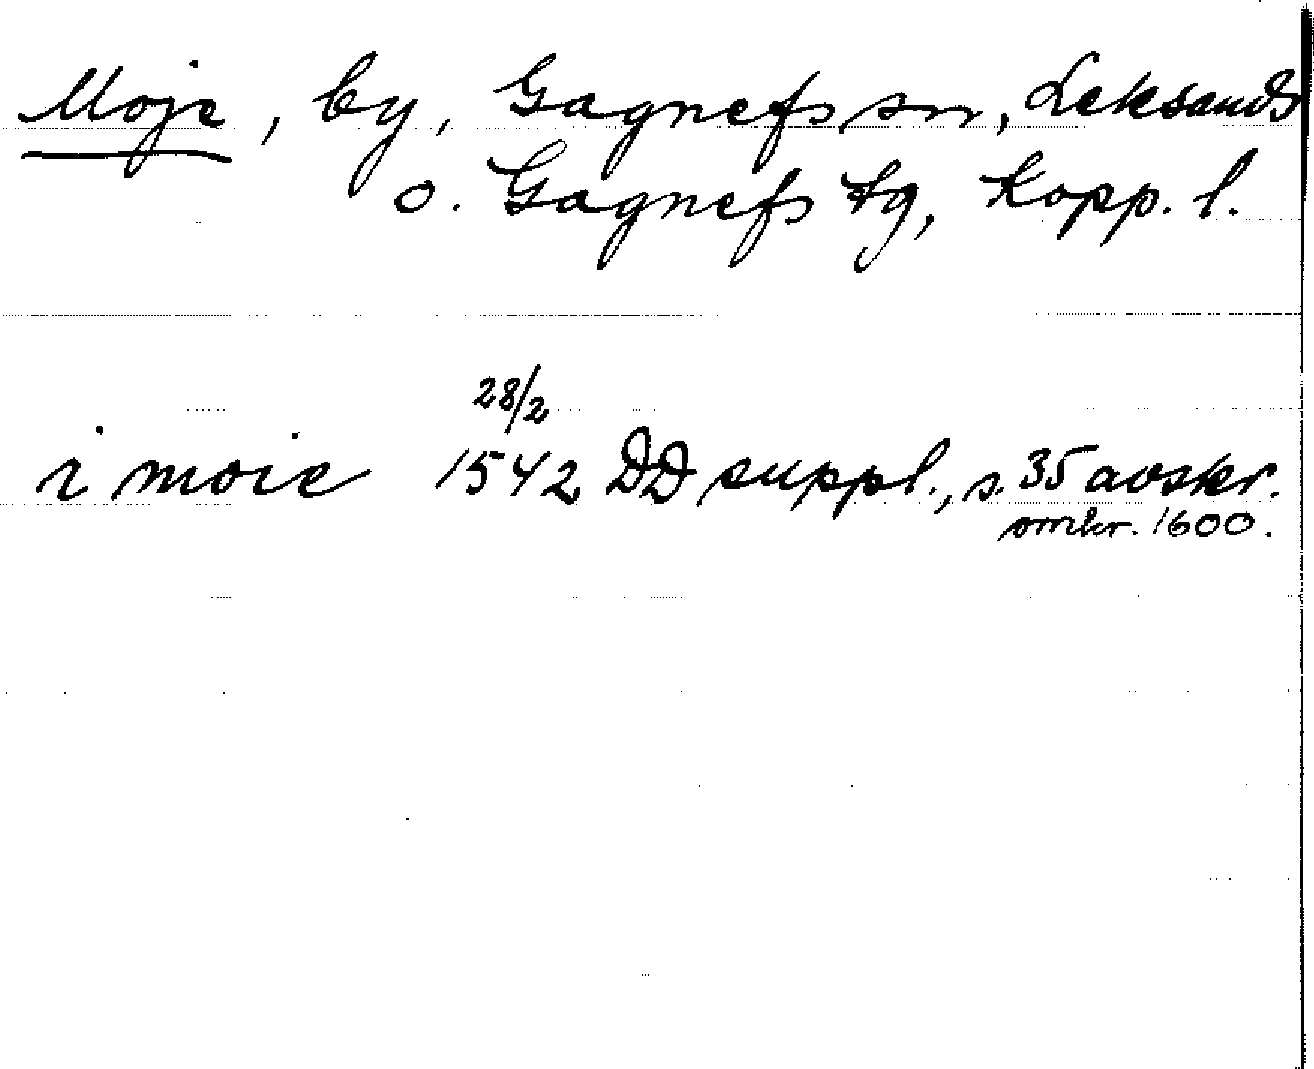 Moje, by, Gagnefs sn, Leksands
o. Gagnefs tg, Kopp. l.
28/2
i moie 1542 DD suppl., s. 35 avskr.
omkr. 1600.